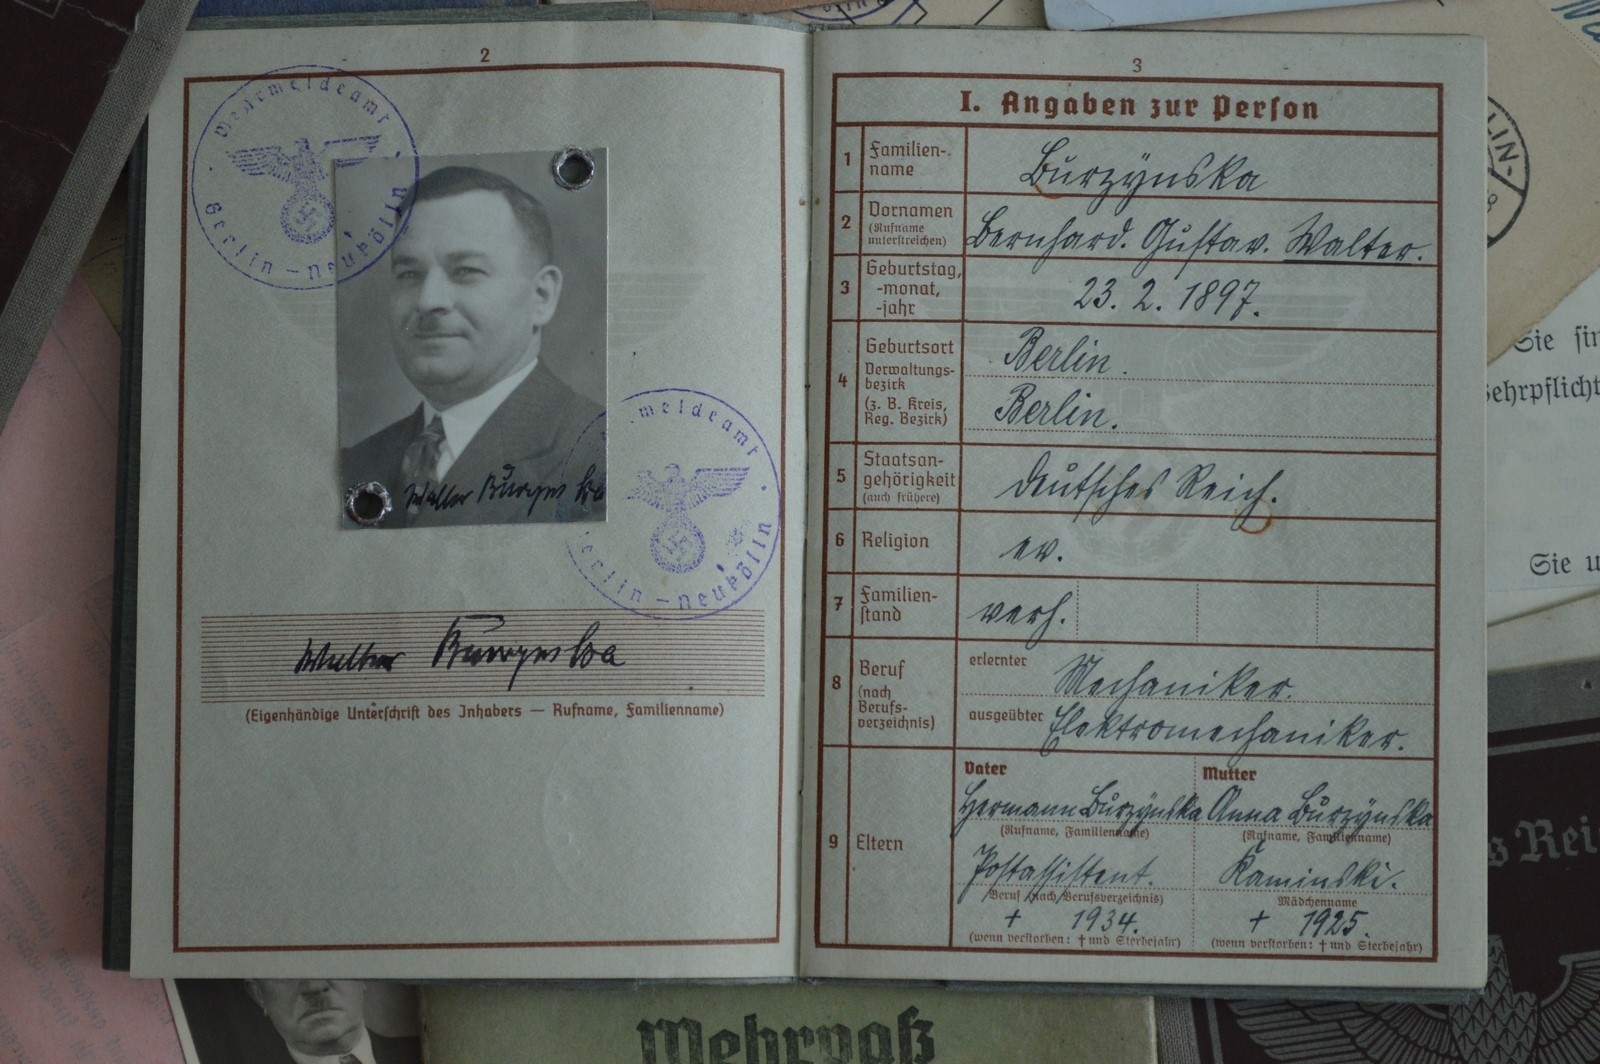 2
Wehrmeldeamt
Berlin-Neukölln
Walter Burzynska
Wehrmeldeamt
Berlin-Neukölln
Walter Burzynska
(Eigenhändige Unterschrift des Inhabers — Rufname, Familienname)
3
I. Angaben zur Person
1 Familien-
name
Burzynska
2 Vornamen
(Rufname
unterstreichen)
Bernhard. Gustav. Walter.
3 Geburtstag,
-monat,
-jahr
23. 2. 1897.
4 Geburtsort
Berlin.
Verwaltungs-
bezirk
(z. B. Kreis,
Reg. Bezirk)
Berlin.
5 Staatsan-
gehörigkeit
(auch frühere)
Deutsches Reich.
6 Religion
ev.
7 Familien-
stand
verh.
8 Beruf
(nach
Berufs-
verzeichnis)
erlernter Mechaniker.
ausgeübter Elektromechaniker.
9 Eltern
Vater
Hermann Burzynska
(Rufname, Familienname)
Postassistent.
Beruf (nach Berufsverzeichnis)
+ 1934.
(wenn verstorben: † und Sterbejahr)
Mutter
Anna Burzynska
(Rufname, Familienname)
Kaminski.
Mädchenname
+ 1925.
(wenn verstorben: † und Sterbejahr)
LIN-
8
Sie sin
ehrpflicht
Sie u
s Rei
Wehrpaß